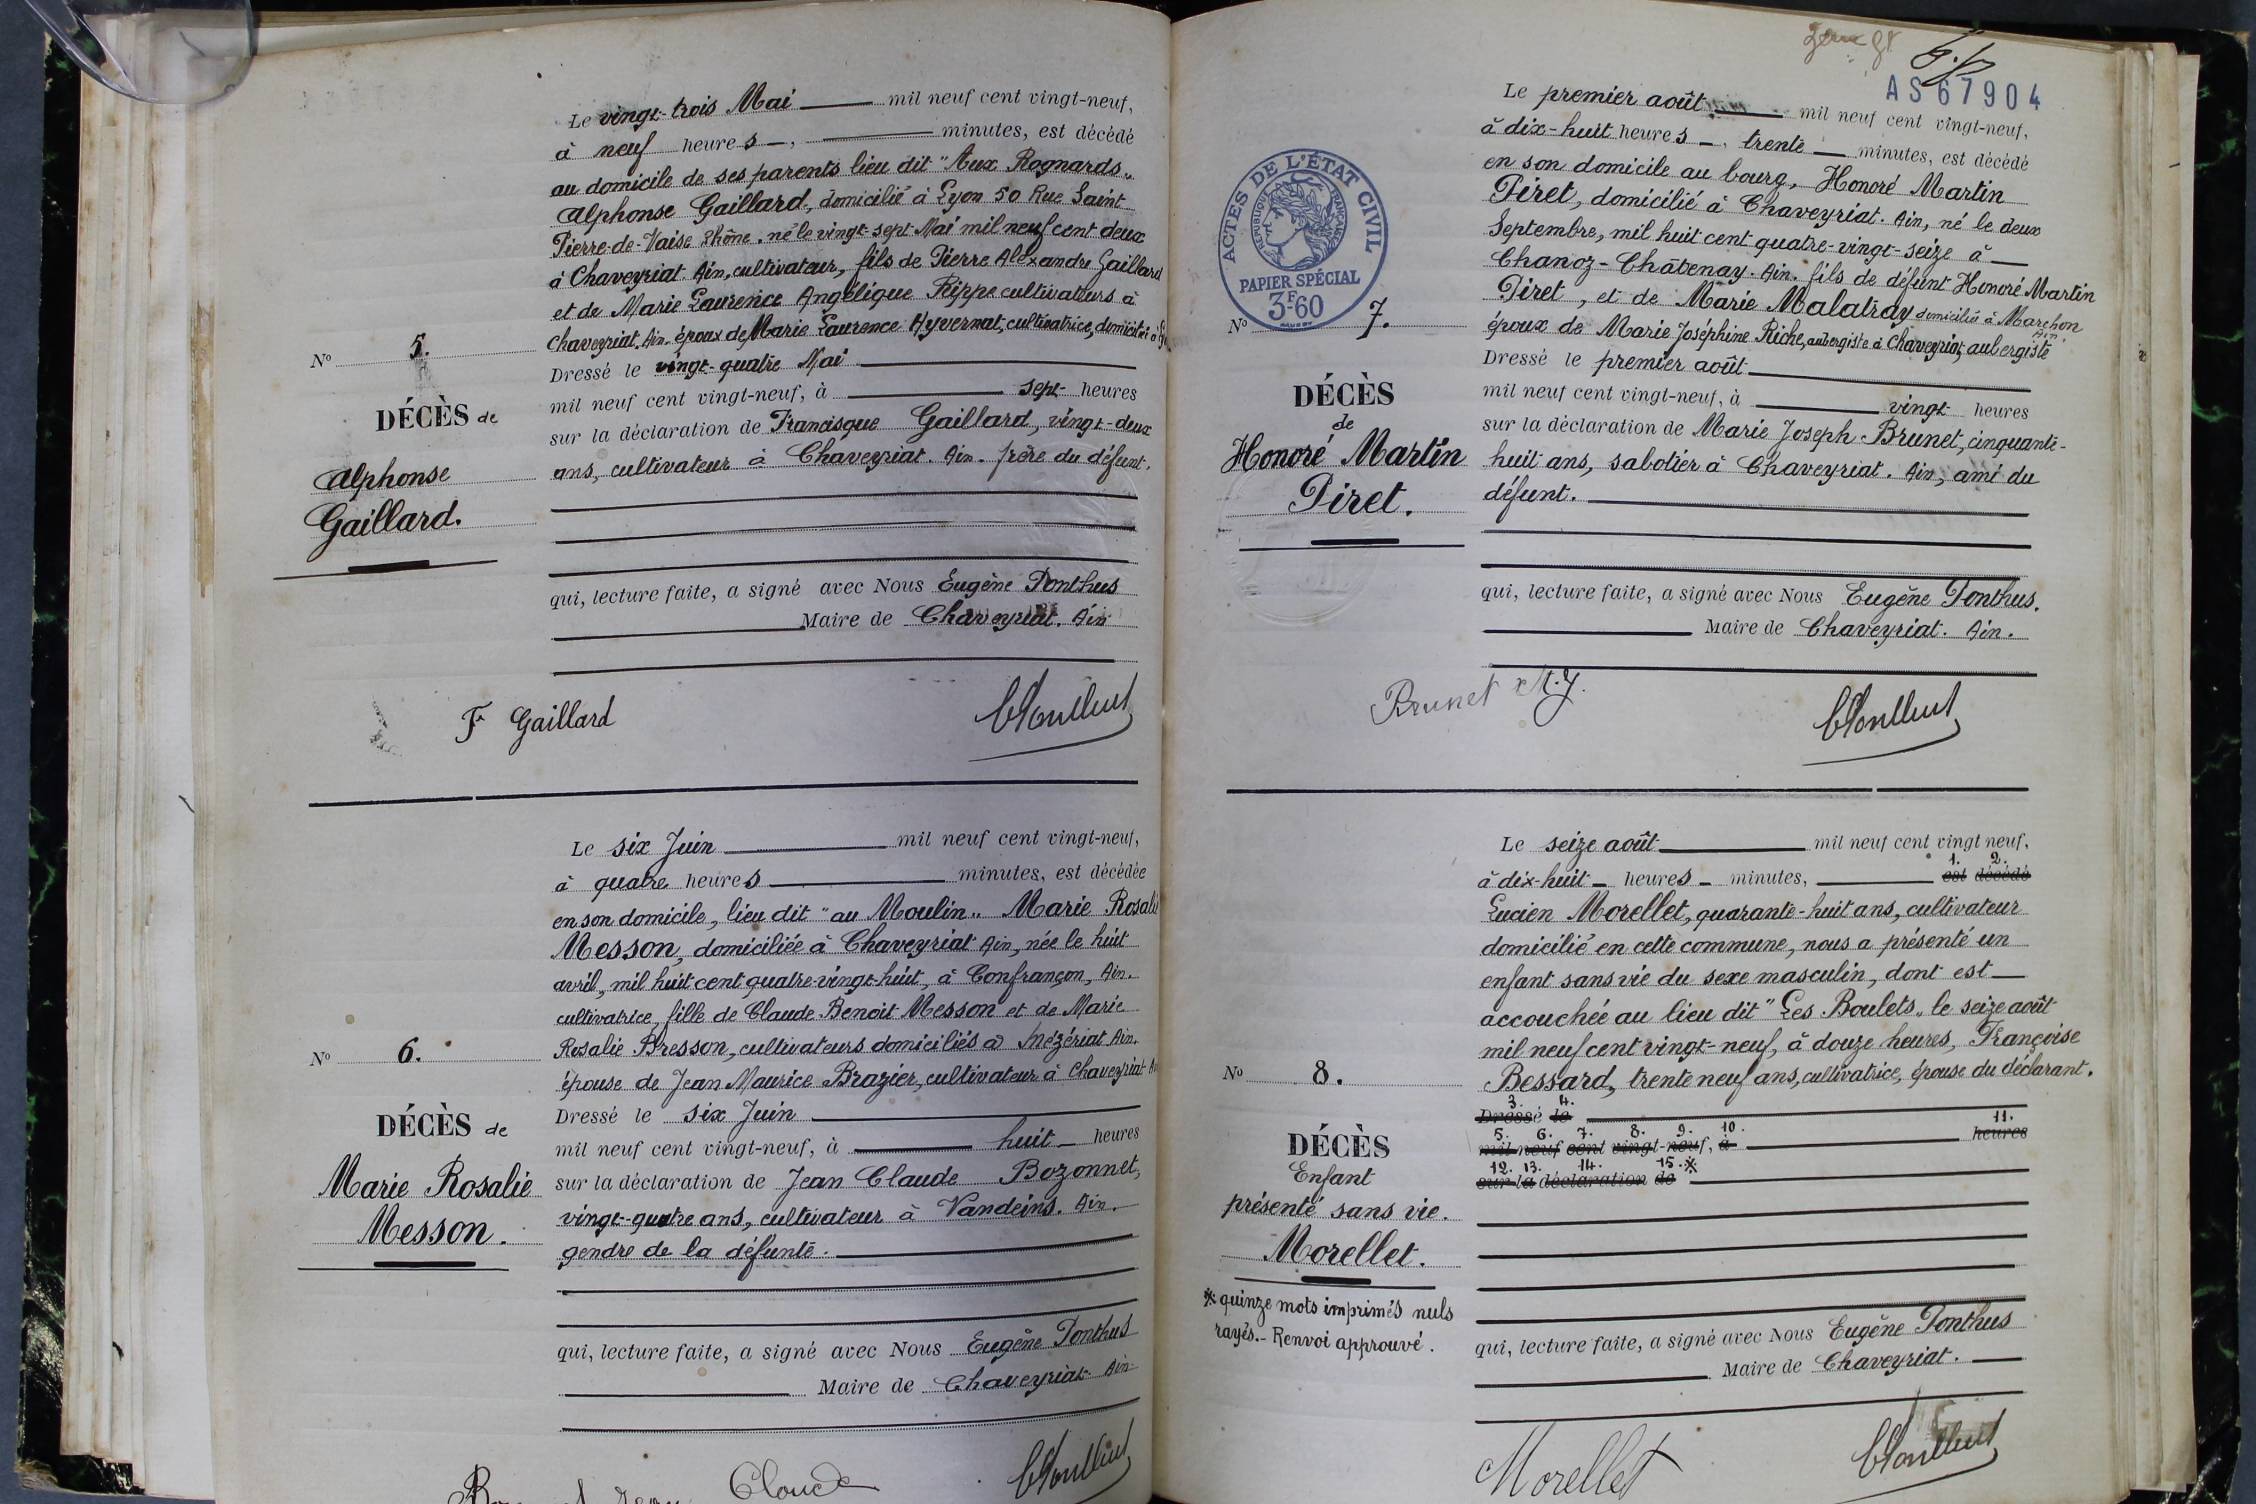 Le vingt-trois Mai mil neuf cent vingt-neuf,
à neuf heures, minutes, est décédé
au domicile de ses parents lieu dit "Aux Rognards„
Alphonse Gaillard, domicilié à Lyon 50 Rue Saint
Pierre-de-Vaise Rhône. né le vingt-sept Mai mil neuf cent deux
à Chaveyriat. Ain, cultivateur, fils de Pierre Alexandre Gaillard
et de Marie Laurence Angélique Rippe cultivateurs à
Chaveyriat. Ain. époux de Marie Laurence Hyvernat, cultivatrice, domicilié à
Nº 5.
Dressé le vingt-quatre Mai
mil neuf cent vingt-neuf, à sept heures
DÉCÈS de
sur la déclaration de Francisque Gaillard, vingt-deux
ans, cultivateur à Chaveyriat. Ain. frère du défunt.
Alphonse
Gaillard.
qui, lecture faite, a signé avec Nous Eugène Ponthus
Maire de Chaveyriat. Ain
F Gaillard
Le six Juin mil neuf cent vingt-neuf,
à quatre heures minutes, est décédée
en son domicile, lieu dit "au Moulin„ Marie Rosalie
Messon, domiciliée à Chaveyriat Ain, née le huit
avril, mil huit cent quatre-vingt-huit, à Confrançon, Ain.
cultivatrice, fille de Claude Benoit Messon et de Marie
Rosalie Bresson, cultivateurs domiciliés à Mézériat Ain.
Nº 6.
épouse de Jean Maurice Brazier, cultivateur à Chaveyriat
Dressé le six Juin
DÉCÈS de
mil neuf cent vingt-neuf, à huit heures
Marie Rosalie
sur la déclaration de Jean Claude Bozonnet,
vingt-quatre ans, cultivateur à Vandeins. Ain.
Messon.
gendre de la défunte.
qui, lecture faite, a signé avec Nous Eugène Ponthus
Maire de Chaveyriat Ain
Claude
AS67904
Le premier août mil neuf cent vingt-neuf,
à dix-huit heures, trente minutes, est décédé
en son domicile au bourg, Honoré Martin
Piret, domicilié à Chaveyriat. Ain, né le deux
Septembre, mil huit cent quatre-vingt-seize à
Chanoz-Châtenay. Ain. fils de défunt Honoré Martin
Piret, et de Marie Malatray domiciliée à Marchon
Ain
époux de Marie Joséphine Riche, aubergiste à Chaveyriat, aubergiste
ACTES DE L'ÉTAT CIVIL
RÉPUBLIQUE FRANÇAISE
PAPIER SPÉCIAL
3F-60
Nº 7.
Dressé le premier août
DÉCÈS
mil neuf cent vingt-neuf, à vingt heures
de
sur la déclaration de Marie Joseph Brunet, cinquante-
Honoré Martin
huit ans, sabotier à Chaveyriat. Ain, ami du
Piret.
défunt.
qui, lecture faite, a signé avec Nous Eugène Ponthus.
Maire de Chaveyriat. Ain.
Brunet M.J.
Le seize août mil neuf cent vingt neuf,
1. 2.
à dix-huit heures minutes, est décédé
Lucien Morellet, quarante-huit ans, cultivateur
domicilié en cette commune, nous a présenté un
enfant sans vie du sexe masculin, dont est
accouchée au lieu dit "Les Boulets„ le seize août
mil neuf cent vingt-neuf, à douze heures, Françoise
Nº 8.
Bessard, trente neuf ans, cultivatrice, épouse du déclarant.
3. 4.
Dressé le
5. 6. 7. 8. 9. 10. 11.
DÉCÈS
mil neuf cent vingt-neuf, à heures
12. 13. 14. 15. ※
Enfant
sur la déclaration de
présenté sans vie.
Morellet.
※ quinze mots imprimés nuls
rayés.- Renvoi approuvé.
qui, lecture faite, a signé avec Nous Eugène Ponthus
Maire de Chaveyriat.
Morellet